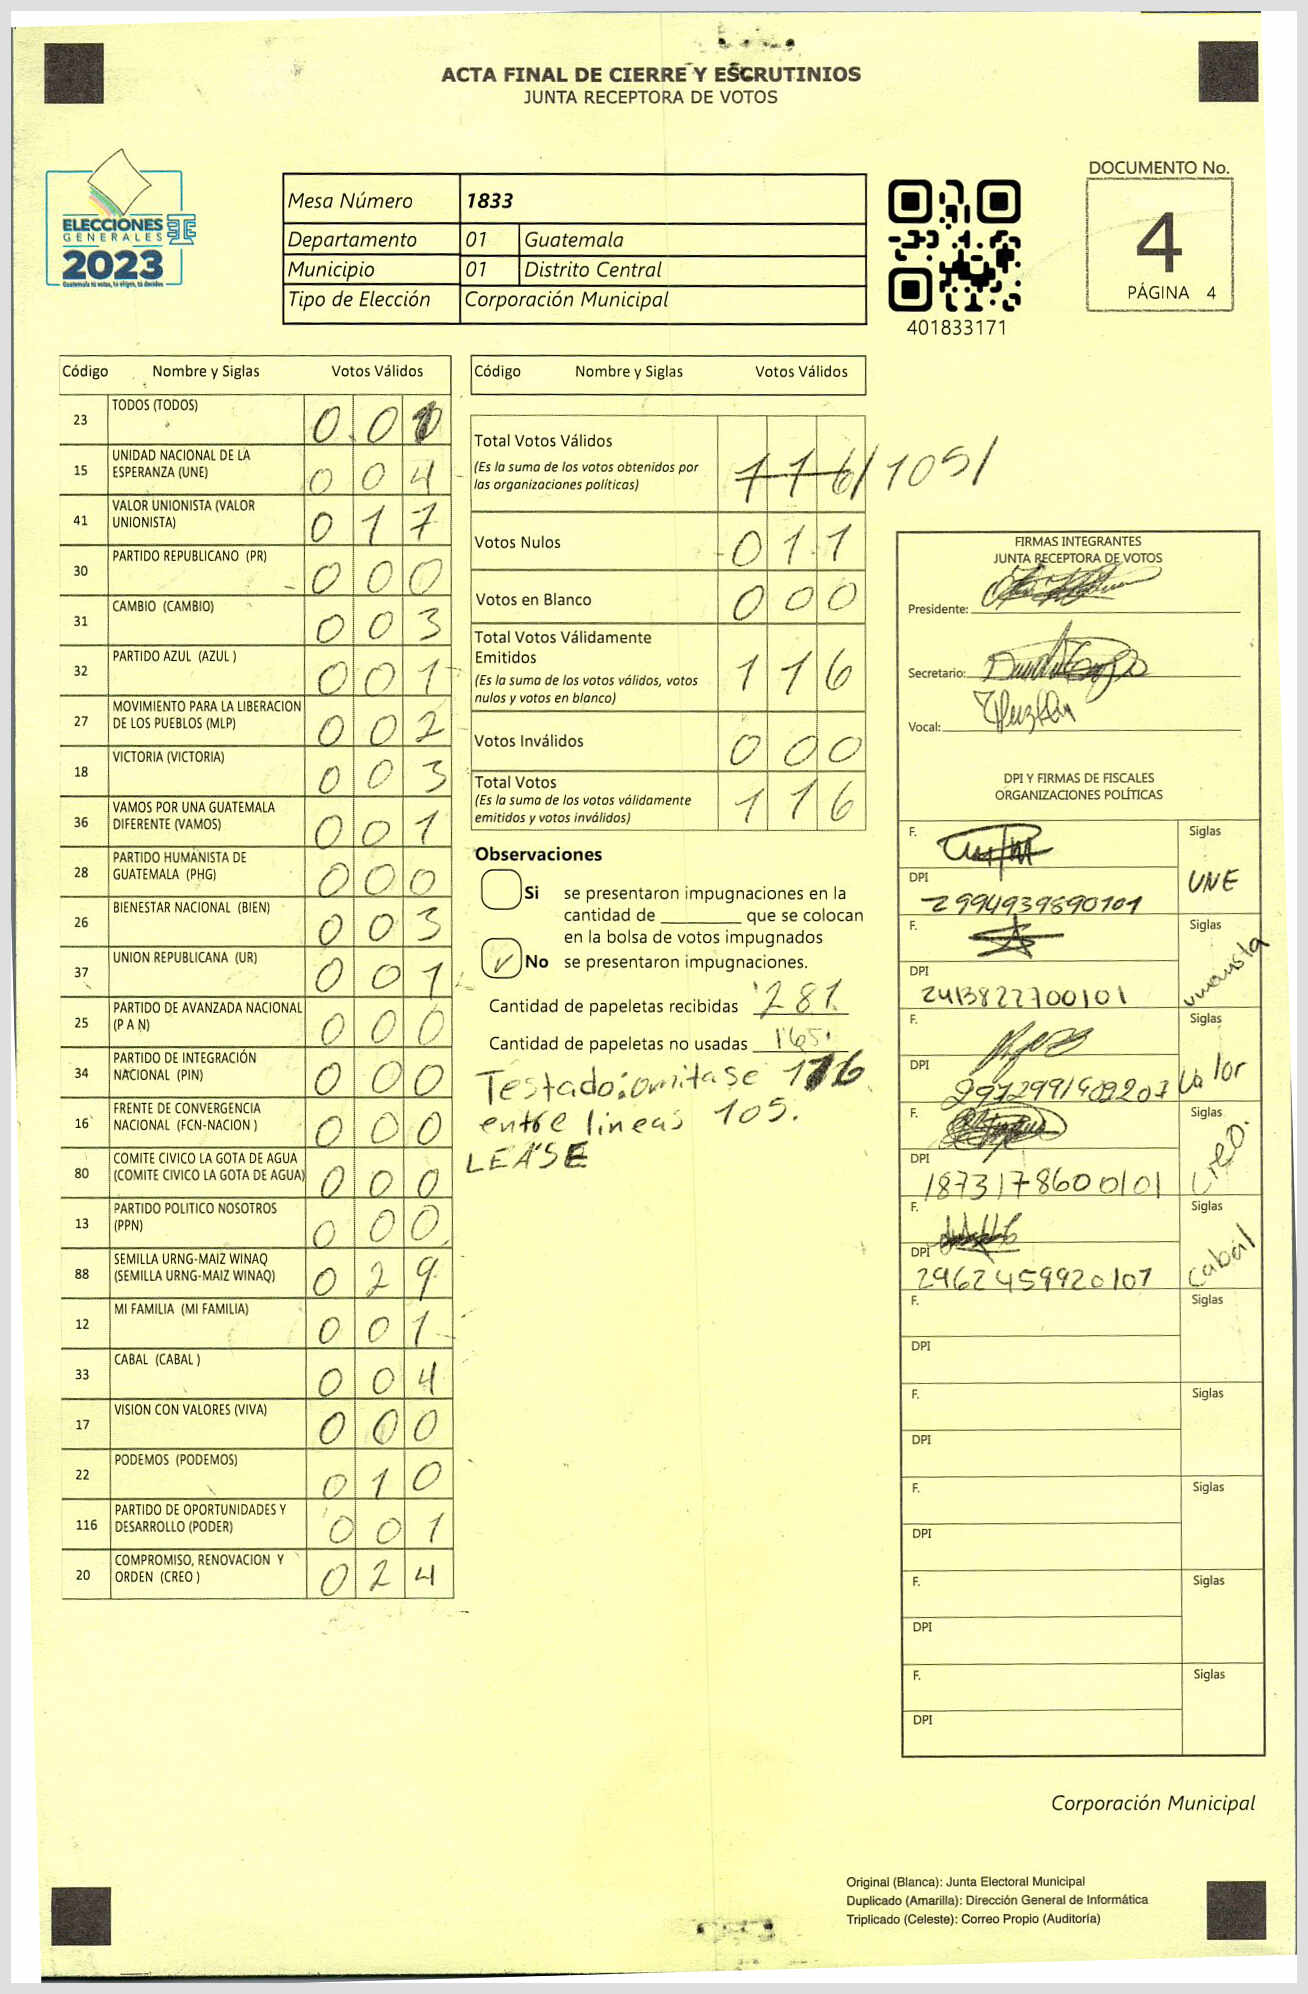 ACTA FINAL DE CIERRE Y ESCRUTINIOS
JUNTA RECEPTORA DE VOTOS
ELECCIONES
GENERALES
2023
Guatemala tú votas, tú eliges, tú decides
Mesa Número 1833
Departamento 01 Guatemala
Municipio 01 Distrito Central
Tipo de Elección Corporación Municipal
401833171
DOCUMENTO No.
4
PÁGINA 4
Código Nombre y Siglas Votos Válidos
23 TODOS (TODOS) 0 0 1
15 UNIDAD NACIONAL DE LA ESPERANZA (UNE) 0 0 4
41 VALOR UNIONISTA (VALOR UNIONISTA) 0 1 7
30 PARTIDO REPUBLICANO (PR) 0 0 0
31 CAMBIO (CAMBIO) 0 0 3
32 PARTIDO AZUL (AZUL ) 0 0 1
27 MOVIMIENTO PARA LA LIBERACION DE LOS PUEBLOS (MLP) 0 0 2
18 VICTORIA (VICTORIA) 0 0 3
36 VAMOS POR UNA GUATEMALA DIFERENTE (VAMOS) 0 0 1
28 PARTIDO HUMANISTA DE GUATEMALA (PHG) 0 0 0
26 BIENESTAR NACIONAL (BIEN) 0 0 3
37 UNION REPUBLICANA (UR) 0 0 1
25 PARTIDO DE AVANZADA NACIONAL (P A N) 0 0 0
34 PARTIDO DE INTEGRACIÓN NACIONAL (PIN) 0 0 0
16 FRENTE DE CONVERGENCIA NACIONAL (FCN-NACION ) 0 0 0
80 COMITE CIVICO LA GOTA DE AGUA (COMITE CIVICO LA GOTA DE AGUA) 0 0 0
13 PARTIDO POLITICO NOSOTROS (PPN) 0 0 0
88 SEMILLA URNG-MAIZ WINAQ (SEMILLA URNG-MAIZ WINAQ) 0 2 9
12 MI FAMILIA (MI FAMILIA) 0 0 1
33 CABAL (CABAL ) 0 0 4
17 VISION CON VALORES (VIVA) 0 0 0
22 PODEMOS (PODEMOS) 0 1 0
116 PARTIDO DE OPORTUNIDADES Y DESARROLLO (PODER) 0 0 1
20 COMPROMISO, RENOVACION Y ORDEN (CREO ) 0 2 4
Código Nombre y Siglas Votos Válidos
Total Votos Válidos 1 1 6/105/
(Es la suma de los votos obtenidos por
las organizaciones políticas)
Votos Nulos 0 1 1
Votos en Blanco 0 0 0
Total Votos Válidamente
Emitidos 1 1 6
(Es la suma de los votos válidos, votos
nulos y votos en blanco)
Votos Inválidos 0 0 0
Total Votos 1 1 6
(Es la suma de los votos válidamente
emitidos y votos inválidos)
Observaciones
Si se presentaron impugnaciones en la
cantidad de ________ que se colocan
en la bolsa de votos impugnados
No se presentaron impugnaciones.
Cantidad de papeletas recibidas 281
Cantidad de papeletas no usadas 165
Testado: omitase 116
entre lineas 105.
LEASE
FIRMAS INTEGRANTES
JUNTA RECEPTORA DE VOTOS
Presidente:
Secretario:
Vocal:
DPI Y FIRMAS DE FISCALES
ORGANIZACIONES POLÍTICAS
F. Siglas
DPI UNE
2994939890101
F. Siglas
DPI unionista
2413822700101
F. Siglas
DPI Valor
F. Siglas
DPI
1873178600101
F. Siglas
DPI Cabal
2962459920101
F. Siglas
DPI
F. Siglas
DPI
F. Siglas
DPI
F. Siglas
DPI
F. Siglas
DPI
Corporación Municipal
Original (Blanca): Junta Electoral Municipal
Duplicado (Amarilla): Dirección General de Informática
Triplicado (Celeste): Correo Propio (Auditoría)